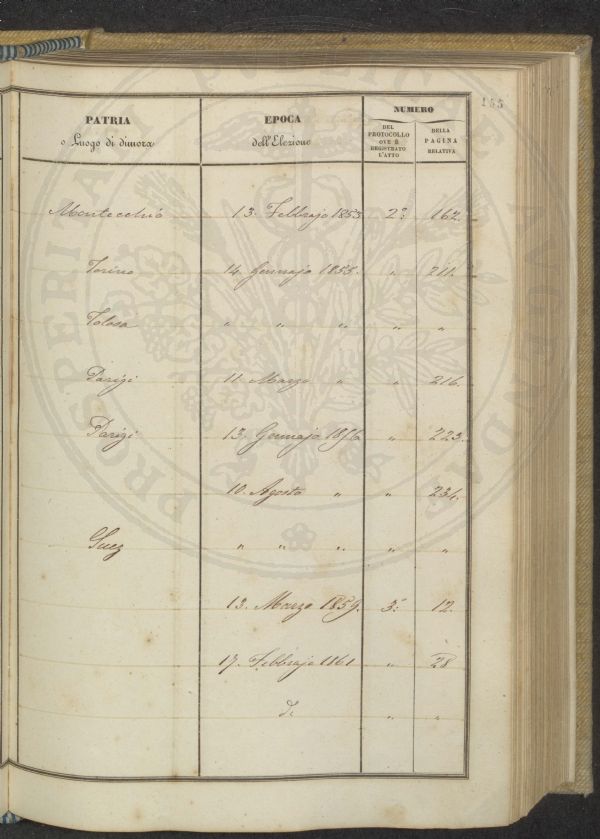 155
PATRIA
o Luogo di dimora
EPOCA
dell'Elezione
NUMERO
DEL
PROTOCOLLO
OVE È
REGISTRATO
L'ATTO
DELLA
PAGINA
RELATIVA
Montecchio 13. Febbrajo 1853. 2.° 162.
Torino 14. Gennajo 1855. " 211.
Tolosa " " " " "
Parigi 11. Marzo " " 216.
Parigi 13. Gennajo 1856 " 223.
10. Agosto " " 234.
Suez " " " " "
13. Marzo 1859. 3.° 12.
17. Febbrajo 1861 " 28
d.° " "
PROSPERITATI PUBLICAE AUGENDAE